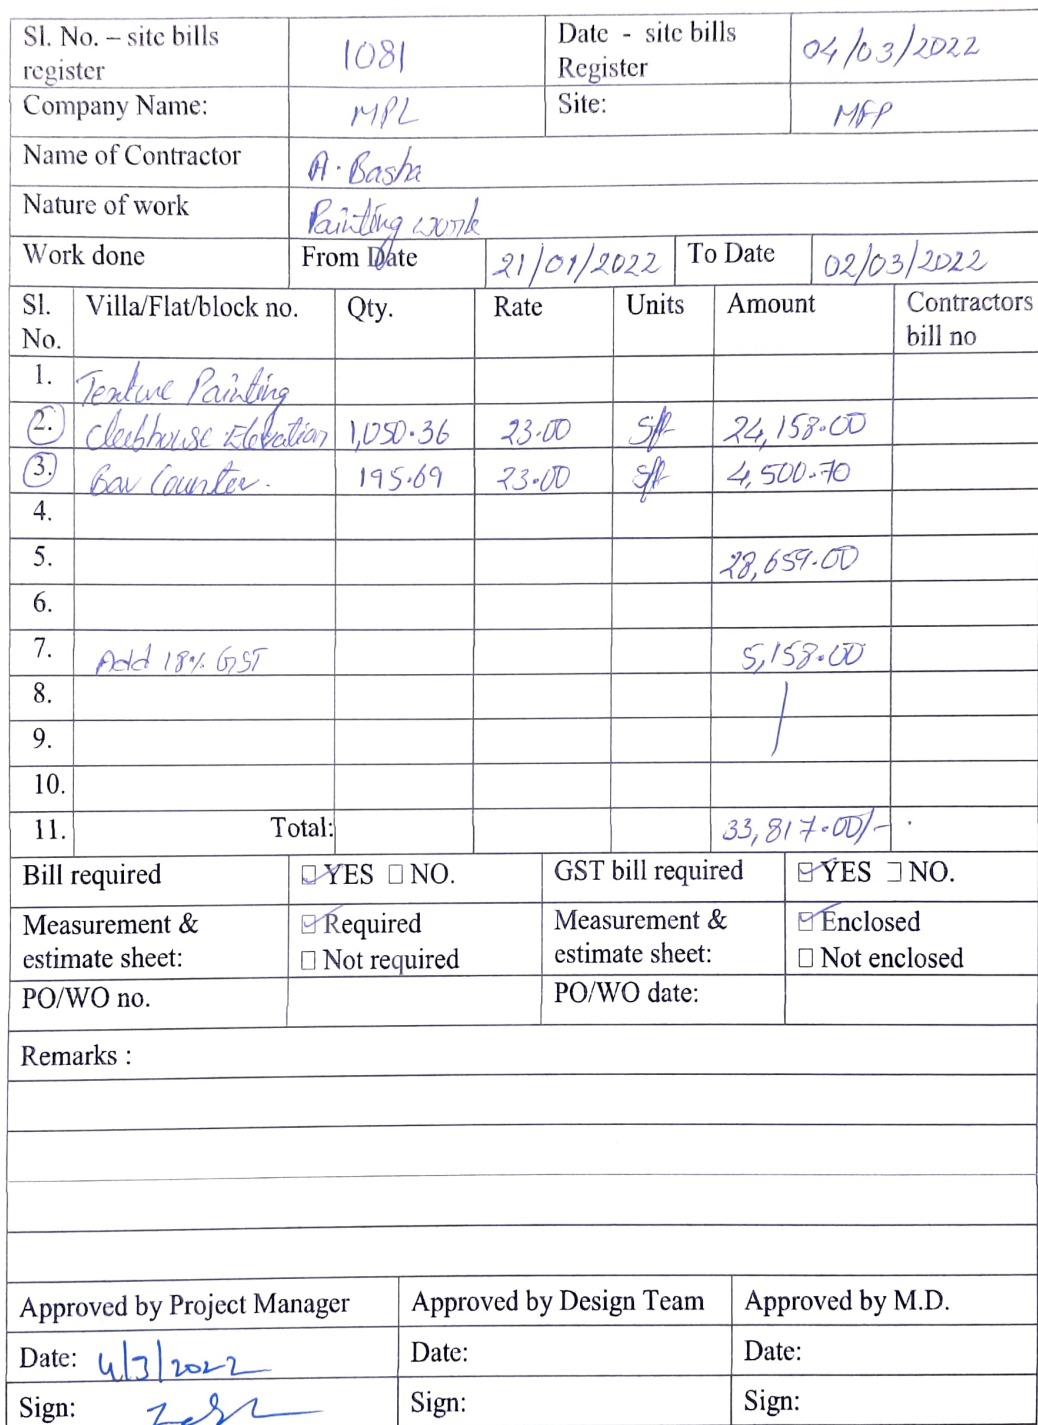 Sl. No. – site bills register 1081 Date - site bills Register 04/03/2022
Company Name: MPL Site: MFP
Name of Contractor A. Basha
Nature of work Painting work
Work done From Date 21/01/2022 To Date 02/03/2022
Sl. No. Villa/Flat/block no. Qty. Rate Units Amount Contractors bill no
1. Texture Painting
2. Clubhouse Elevation 1,050.36 23.00 Sft 24,158.00
3. Bar Counter. 195.69 23.00 sft 4,500.70
4.
5. 28,659.00
6.
7. Add 18% GST 5,158.00
8.
9.
10.
11. Total: 33,817.00/-
Bill required ☑YES ☐NO. GST bill required ☑YES ☐NO.
Measurement & estimate sheet: ☑Required ☐Not required Measurement & estimate sheet: ☑Enclosed ☐Not enclosed
PO/WO no. PO/WO date:
Remarks :
Approved by Project Manager Approved by Design Team Approved by M.D.
Date: 4/3/2022 Date: Date:
Sign: Sign: Sign: